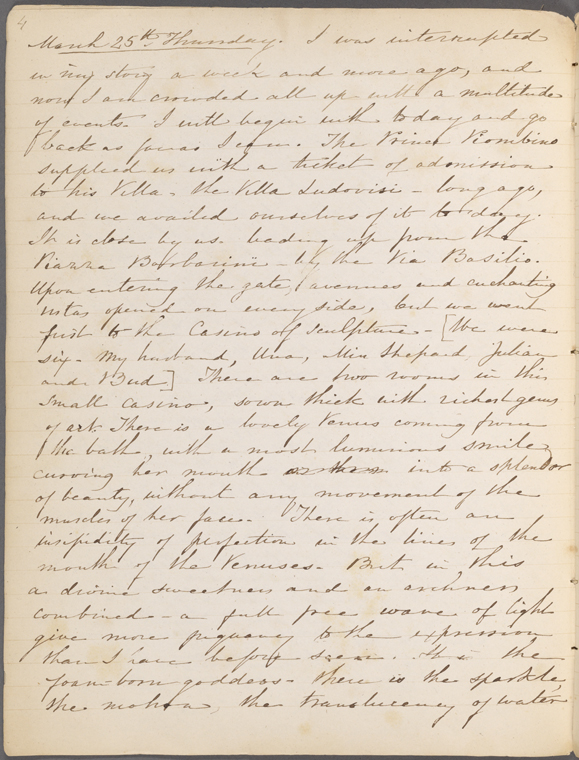 4
March 25th Thursday. I was interrupted
in my story a week and more ago, and
now I am crowded all up with a multitude
of events. I will begin with today and go
back as far as I can. The Prince Piombino
supplied us with a ticket of admission
to his Villa - the Villa Ludovisi - long ago,
and we availed ourselves of it to day.
It is close by us. leading up from the
Piazza Barbarini - by the Via Basilio.
Upon entering the gate, avenues and enchanting
vistas opened on every side, but we went
first to the Casino of sculpture - [We were
six - my husband, Una, Miss Shepard, Julian
and Bud] There are two rooms in this
small casino, sown thick with richest gems
of art. There is a lovely Venus coming from
the bath, with a most luminous smile
curving her mouth into a splendor
of beauty, without any movement of the
muscles of her face. There is often an
insipidity of perfection in the lines of the
mouth of the Venuses. But in this
a divine sweetness and an archness
combined - a full free wave of light
give more piquancy to the expression
than I have before seen. It is the
foam-born goddess - there is the sparkle,
the motion, the translucency of water